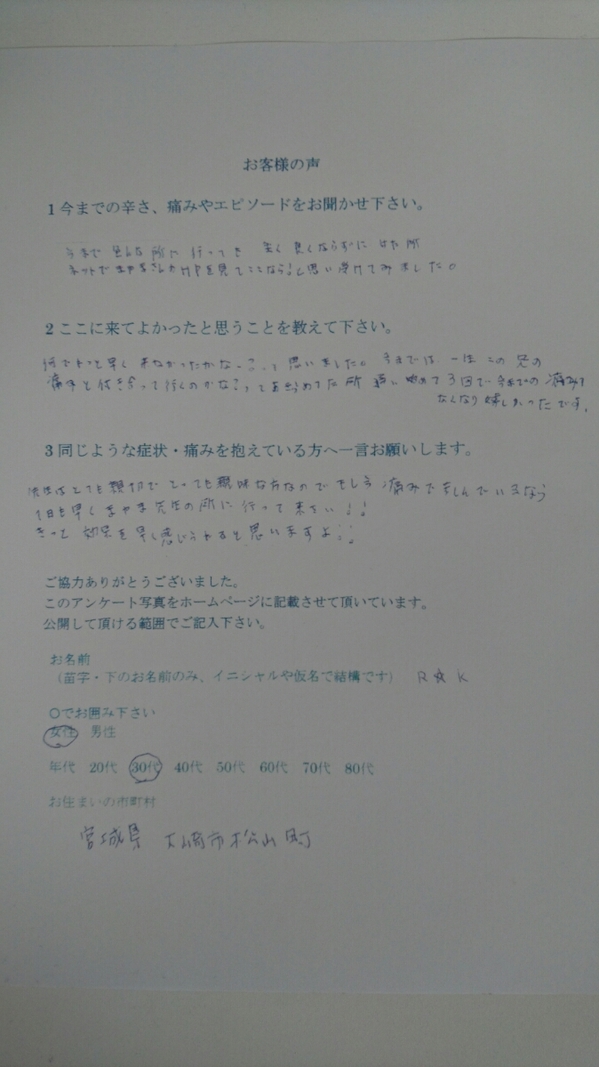 お客様の声
1今までの辛さ、痛みやエピソードをお聞かせ下さい。
今まで 色んな所に行っても 全く良くならずに いた所
ネットで さんのHPを見てここなら!と思い受けてみました。
2ここに来てよかったと思うことを教えて下さい。
何でもっと早く来なかったかな…って思いました。今までは一生この
痛みと付き合って行くのかな…ってあきらめてた所 通い始めて3回で今までの痛みが
なくなり嬉しかったです。
3同じような症状・痛みを抱えている方へ一言お願いします。
先生はとても親切でとっても な方なのでもしも痛みで んでいるなら
1日も早く まやま先生の所に行って下さい!!
きっと効果を早く感じられると思いますよ!!
ご協力ありがとうございました。
このアンケート写真をホームページに記載させて頂いています。
公開して頂ける範囲でご記入下さい。
お名前
(苗字・下のお名前のみ、イニシャルや仮名で結構です) R☆K
○でお囲み下さい
女性 男性
年代 20代 30代 40代 50代 60代 70代 80代
お住まいの市町村
宮城県 大崎市松山町